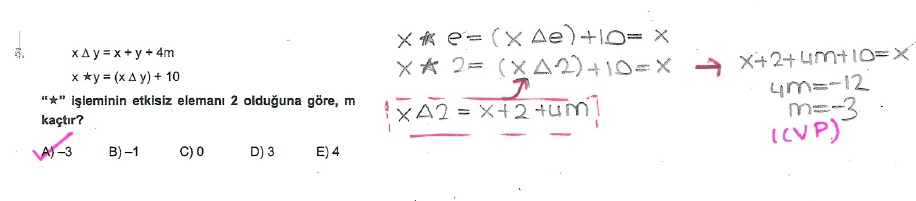 5.
x Δ y = x + y + 4m
x ★y = (x Δ y) + 10
“★” işleminin etkisiz elemanı 2 olduğuna göre, m
kaçtır?
A) –3 B) –1 C) 0 D) 3 E) 4
x ★ e = (x Δe)+10= x
x ★ 2= (x Δ2)+10=x → x+2+4m+10=x
x Δ2 = x+2+4m
4m=-12
m=-3
(CVP.)